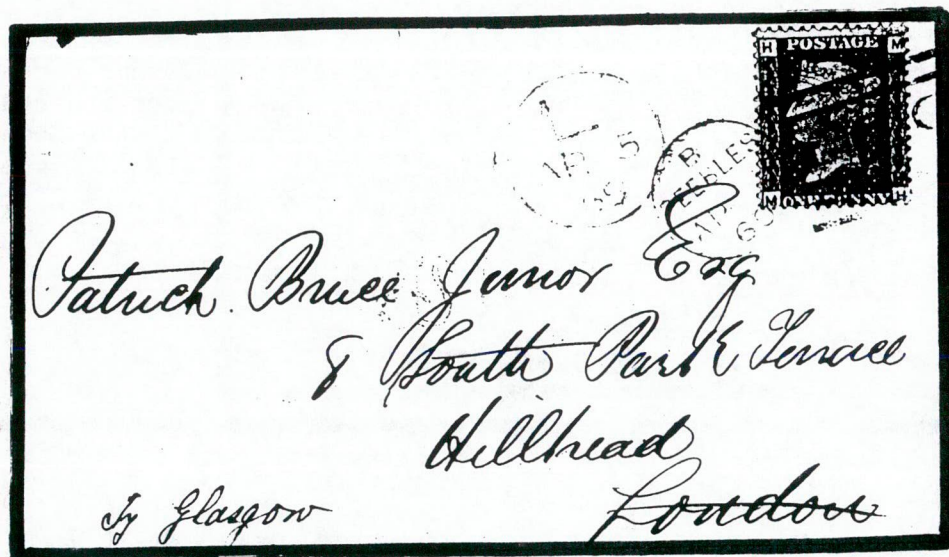 H POSTAGE M
M ONE PENNY H
L
AP 5
B
PEEBLES
AP
Patrick Bruce Junior Esq
8 South Park Terrace
Hillhead
London
Ty Glasgow